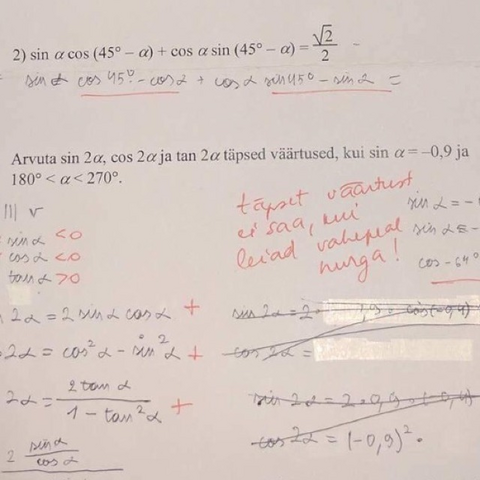 2) sin α cos (45° − α) + cos α sin (45° − α) = √2/2
sin α cos 45° - cos α + cos α sin 45° - sin α =
Arvuta sin 2α, cos 2α ja tan 2α täpsed väärtused, kui sin α = –0,9 ja
180° < α < 270°.
III v
sin α < 0
cos α < 0
tan α > 0
täpset väärtust
ei saa, kui
leiad vahepeal
nurga!
sin α = -
sin α = -
cos -64°
2α = 2 sin α cos α +
2α = cos²α - sin²α +
2α = 2 tan α / 1 - tan²α +
2 sin α / cos α
sin 2α = 2 ·
cos 2α =
sin 2α = 2 · 0,9 · (-0,4)
cos 2α = (-0,9)² ·